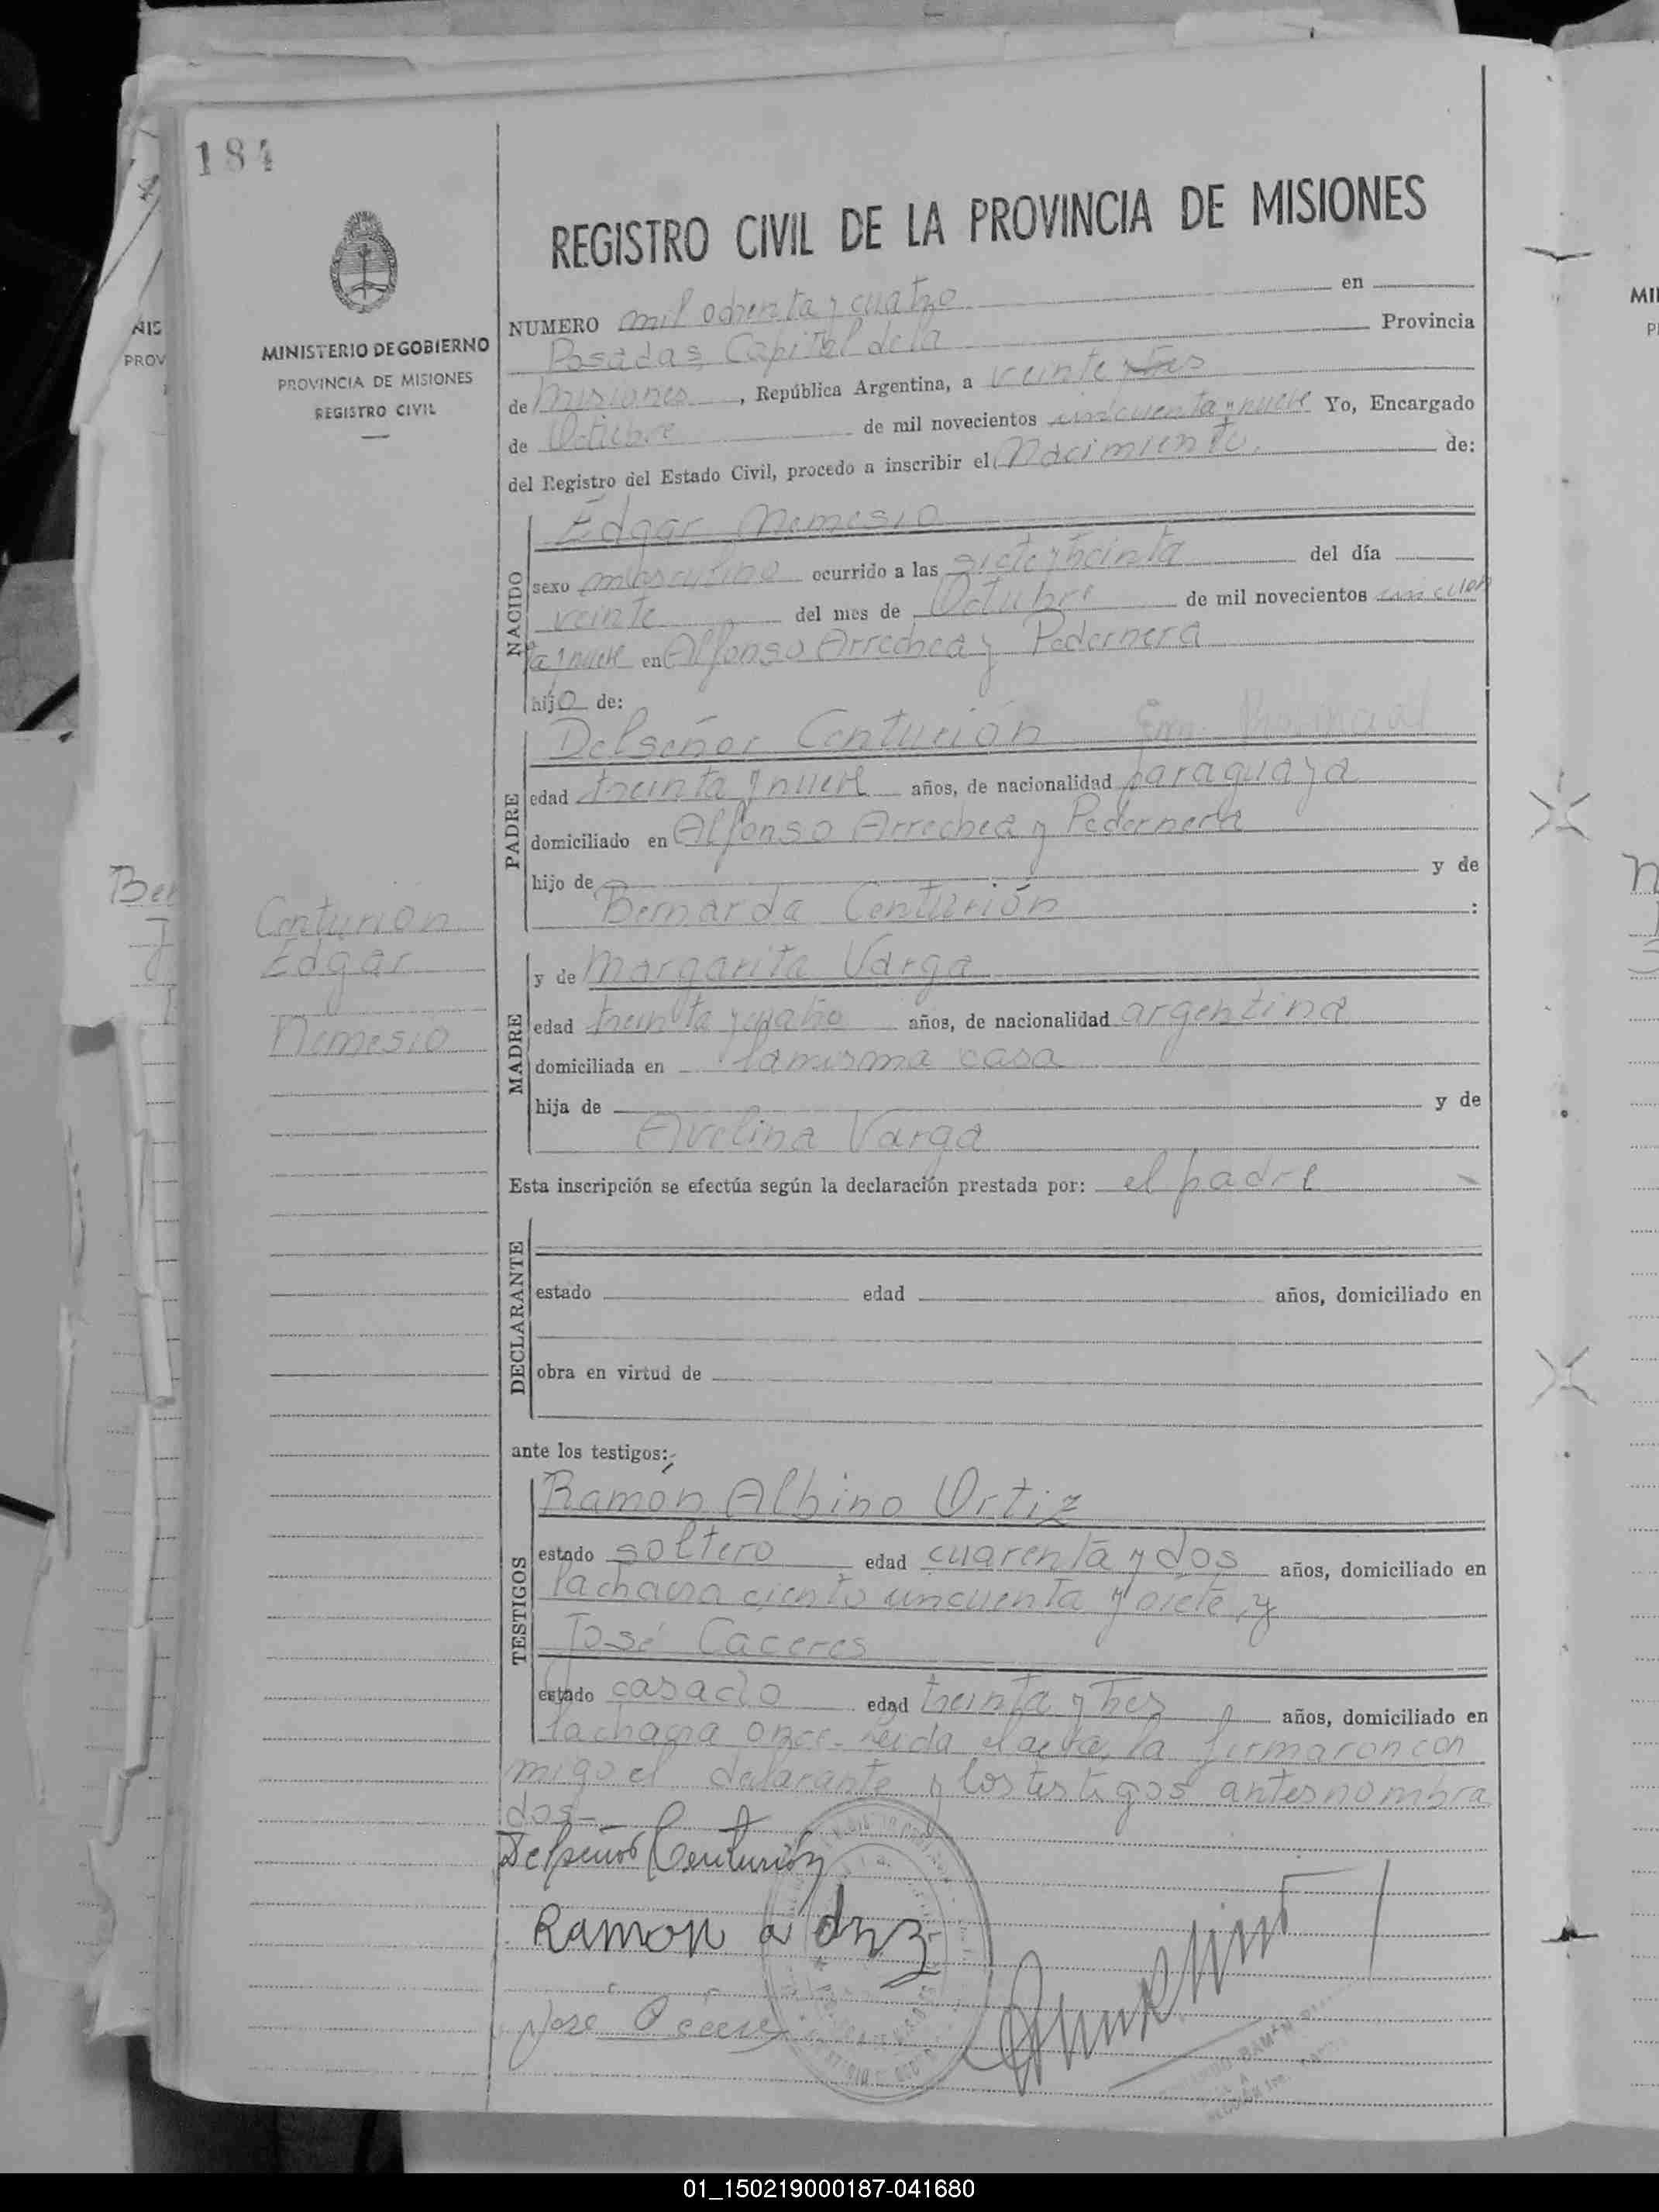 184
MINISTERIO DE GOBIERNO
PROVINCIA DE MISIONES
REGISTRO CIVIL
REGISTRO CIVIL DE LA PROVINCIA DE MISIONES
NUMERO mil ochenta y cuatro en
Posadas, Capital de la Provincia
de Misiones, República Argentina, a veinte y tres
de Octubre de mil novecientos cincuenta y nueve Yo, Encargado
del Registro del Estado Civil, procedo a inscribir el Nacimiento. de:
NACIDO
Edgar Nemesio
sexo masculino ocurrido a las siete y treinta del día
veinte del mes de Octubre de mil novecientos cincuen
ta y nueve en Alfonso Arrechea y Pedernera
hijo de:
PADRE
Delseñor Centurión
edad treinta y nueve años, de nacionalidad paraguaya
domiciliado en Alfonso Arrechea y Pedernera
hijo de y de
Bernarda Centurión :
Centurion
Edgar
Nemesio
MADRE
y de Margarita Varga
edad treinta y cuatro años, de nacionalidad argentina
domiciliada en la misma casa
hija de y de
Avelina Varga
Esta inscripción se efectúa según la declaración prestada por: el padre
DECLARANTE
estado edad años, domiciliado en
obra en virtud de
ante los testigos:
TESTIGOS
Ramon Albino Ortiz
estado soltero edad cuarenta y dos años, domiciliado en
la chacra ciento cincuenta y siete, y
José Caceres
estado casado edad treinta y tres años, domiciliado en
la chacra once- Leida el acta, la firmaron con
migo el declarante y los testigos antes nombra
dos-
Delseñor Centurión
Ramon a
José
01_150219000187-041680